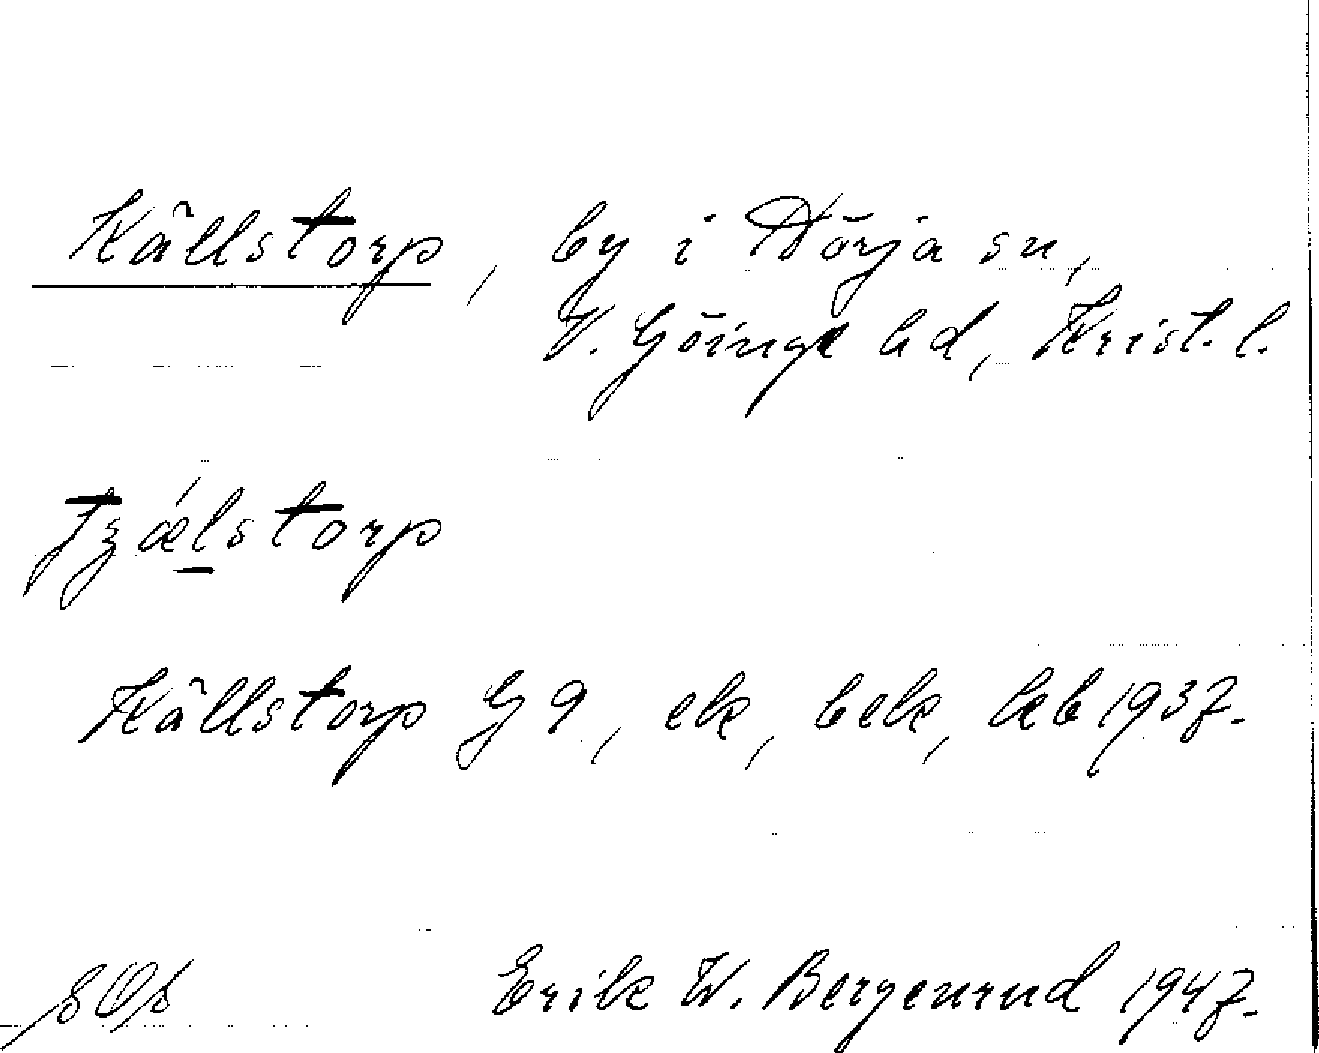 Källstorp, by i Nörja sn,
V. Göinge hd, Krist. l.
tʒǽlstorp
Källstorp G 9, ek, bek, hb 1937.
Erik W. Bergenrud 1947.